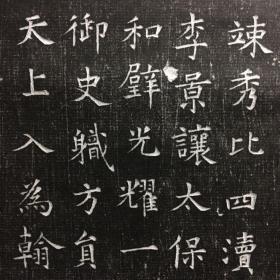 竦秀比四瀆
李景讓太保
和璧光耀一
御史職方員
天上入為翰